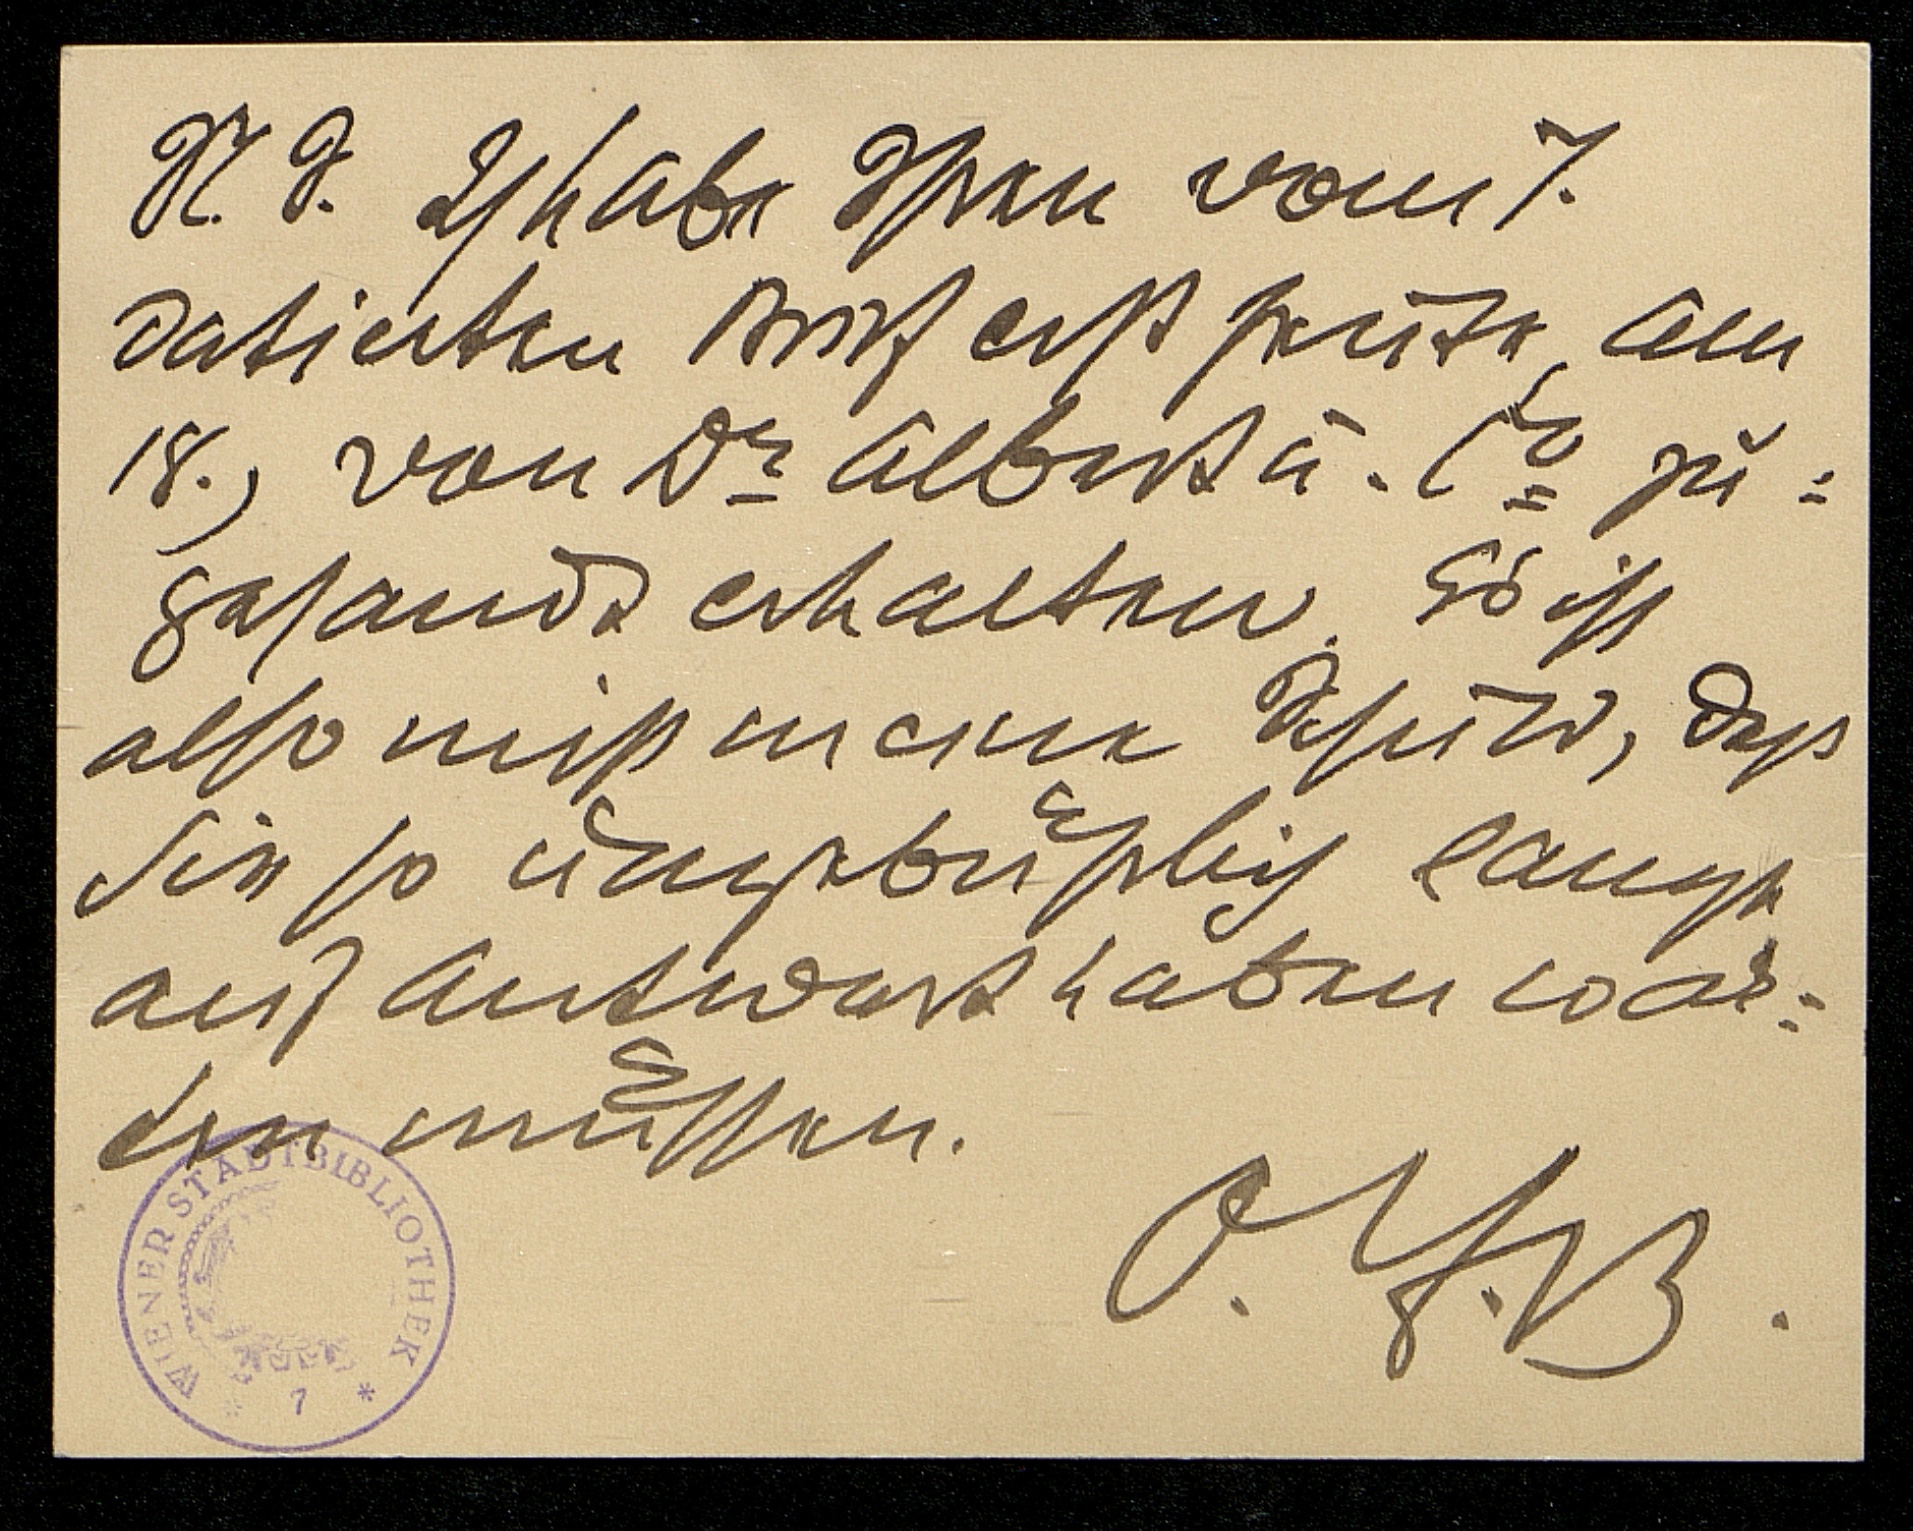 N. S. Ich habe Ihren vom 7.
datierten Brief erst heute, am
18., von Dr Albert u. Co zu=
gesandt erhalten. Es ist
also nicht meine Schuld, dass
Sie so ungebührlich lange
auf Antwort haben war=
ten müssen.
O. J. B.
WIENER STADTBIBLIOTHEK
* 7 *